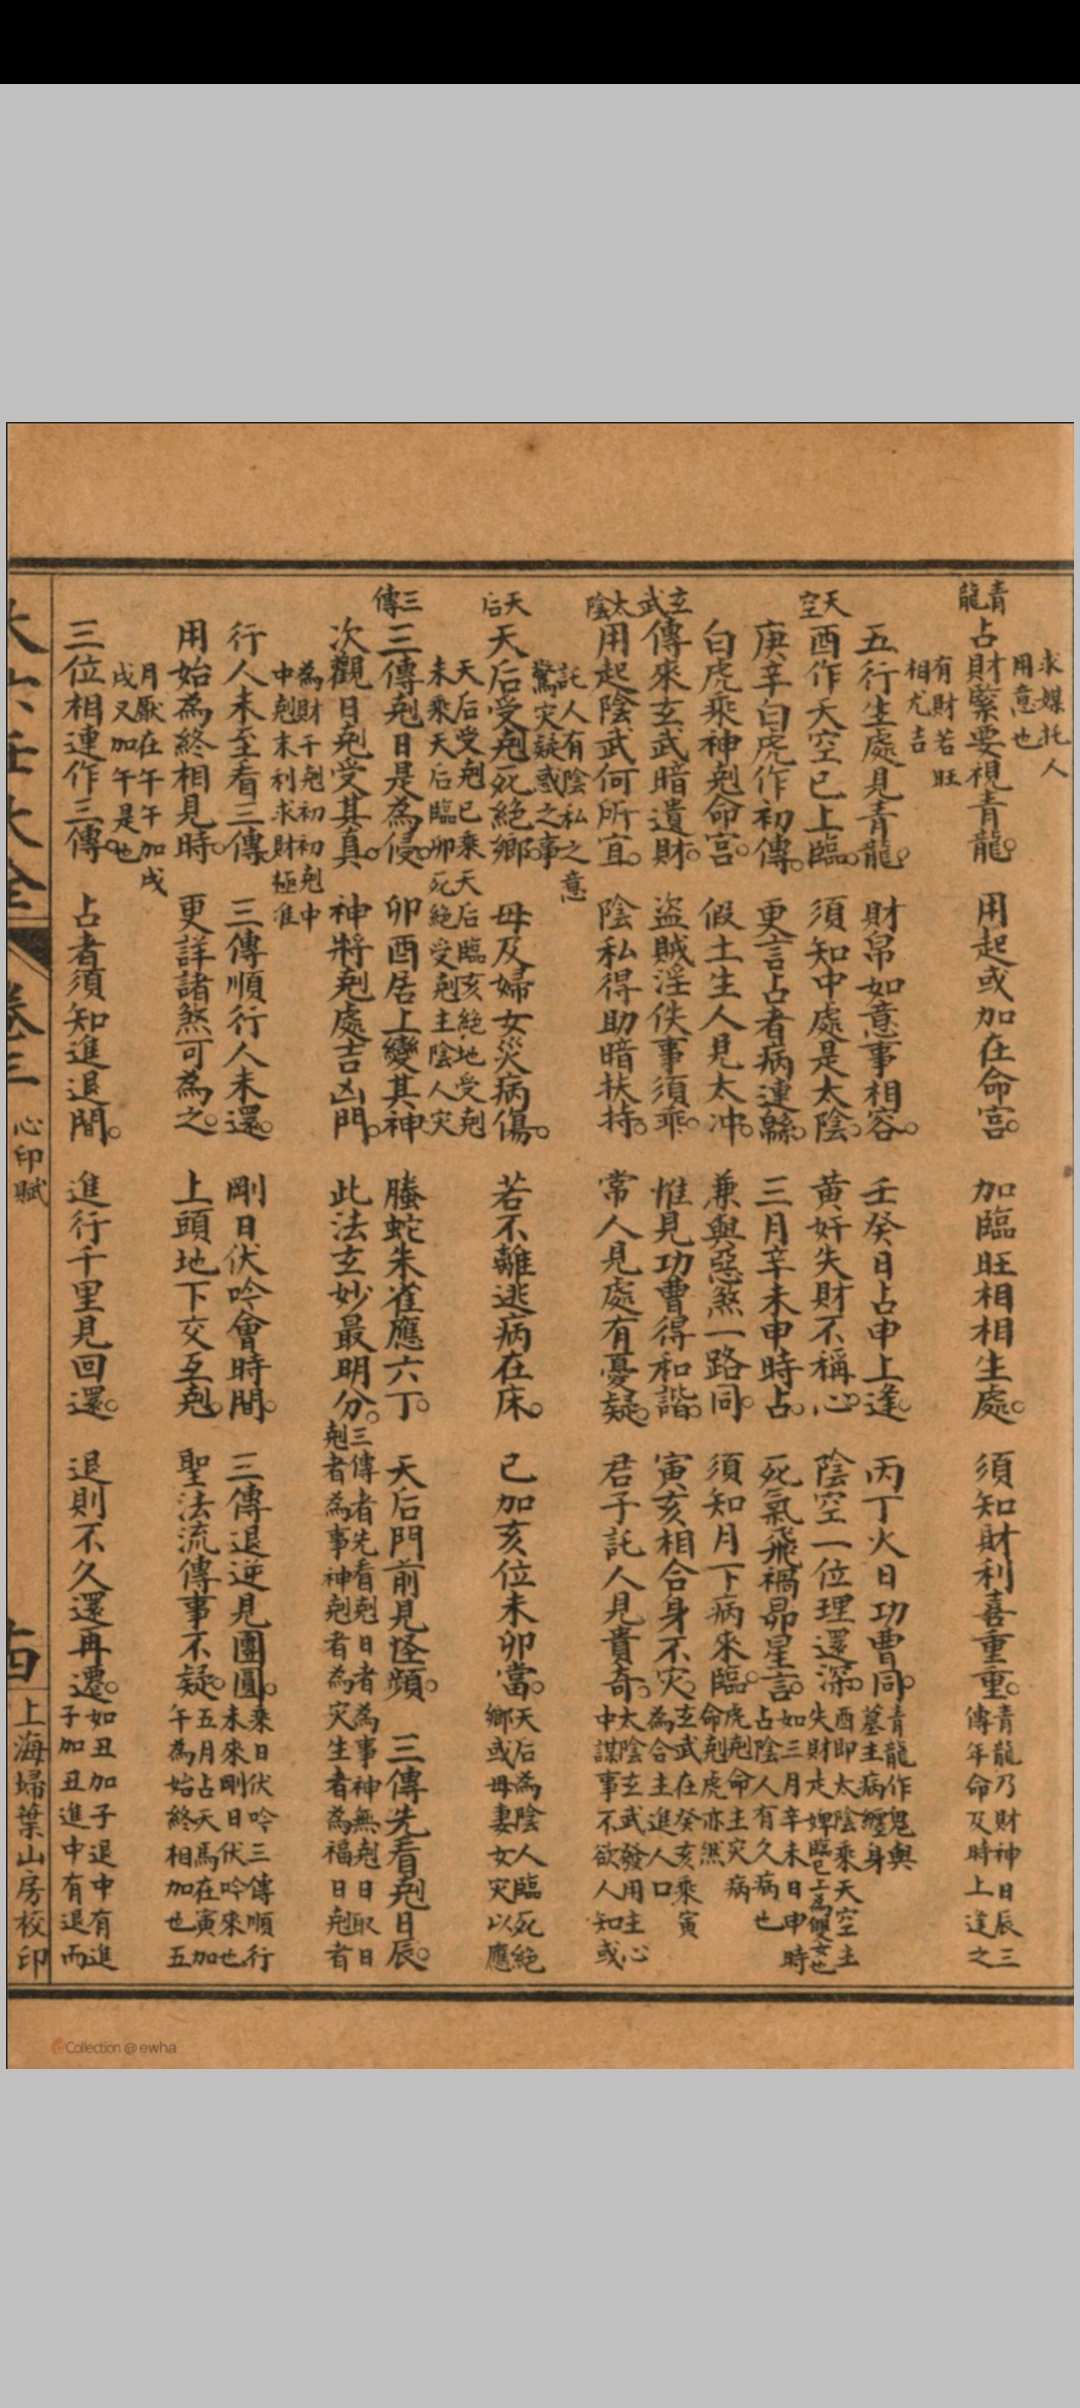 求媒托人
用意也
青龍
占財緊要視青龍。用起或加在命宮。加臨旺相相生處。須知財利喜重重。
青龍乃財神日辰三
傳年命及時上逢之
有財若旺
相尤吉
五行生處見青龍。財帛如意事相容。壬癸日占申上逢。丙丁火日功曹同。
青龍作鬼與
墓主病纏身
天空
酉作天空巳上臨。須知中處是太陰。黃奸失財不稱心。陰空一位理還深。
酉即太陰乘天空主
失財走婢臨巳上為雙女也
庚辛白虎作初傳。更言占者病連綿。三月辛未申時占。死氣飛禍昴星言。
如三月辛未日申時
占陰人有久病也
白虎乘神剋命宮。假土生人見太冲。兼與惡煞一路同。須知月下病來臨。
虎剋命主灾病
命剋虎亦然
玄武
傳來玄武暗遺財。盜賊淫佚事須乖。惟見功曹得和諧。寅亥相合身不灾。
玄武在癸亥乘寅
為合主進人口
太陰
用起陰武何所宜。陰私得助暗扶持。常人見處有憂疑。君子託人見貴奇。
太陰玄武發用主心
中謀事不欲人知或
託人有陰私之意
驚灾疑惑之事
天后
天后受剋死絕鄉。母及婦女災病傷。若不離逃病在床。己加亥位未卯當。
天后為陰人臨死絕
鄉或母妻女灾以應
天后受剋巳乘天后臨亥絕地受剋
未乘天后臨卯死絕受剋主陰人灾
三傳
三傳剋日是為侵。卯酉居上變其神。螣蛇朱雀應六丁。天后門前見怪頻。三傳先看剋日辰。
次觀日剋受其真。神將剋處吉凶門。此法玄妙最明分。
三傳者先看剋日者為事神無剋日取日
剋者為事神剋者為灾生者為福日剋者
為財干剋初初剋中
中剋末利求財極准
行人未至看三傳。三傳順行人未還。剛日伏吟會時間。三傳退逆見團圓。
乘日伏吟三傳順行
未來剛日伏吟來也
用始為終相見時。更詳諸煞可為之。上頭地下交互剋。聖法流傳事不疑。
五月占天馬在寅加
午為始終相加也五
月厭在午午加戌
戌又加午是也
三位相連作三傳。占者須知進退間。進行千里見回還。退則不久還再遷。
如丑加子退中有進
子加丑進中有退而
大六壬大全 卷三 心印賦 上海掃葉山房校印
Collection @ ewha